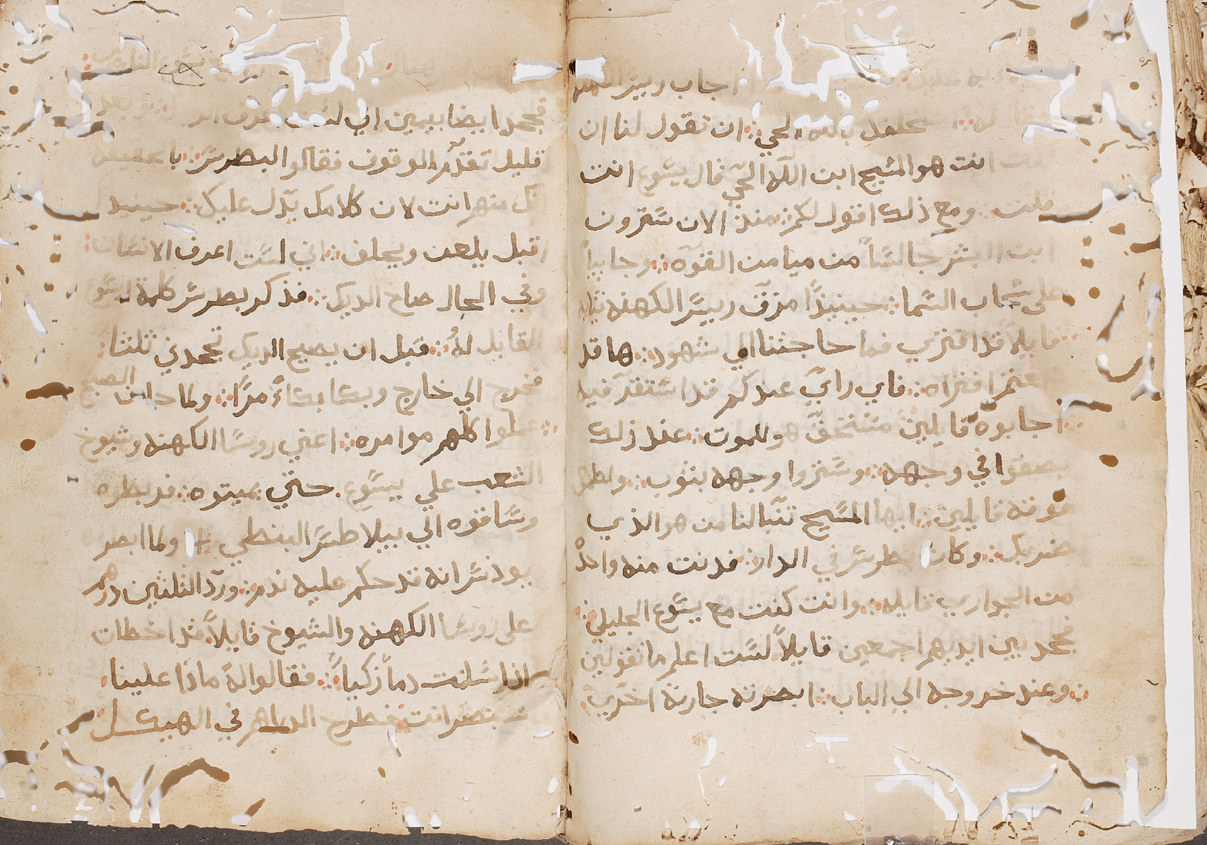 اجاب رييس
استحلفك بالله الحي ان تقول لنا ان
كنت انت هو المسيح ابن الله الحي قال يسوع انت
قلت ومع ذلك اقول لكم منذ الان سترون
ابن البشر جالسًا من ميامن القوه وجاييًا
على سحاب السما حينيذًا مزق رييس الكهنه ثيابه
قايلا قد افترى فما حاجتنا الي شهود ها قد
سمعتم افتراه فاي راي عندكم قد استقر فيه
اجابوه قايلين مستحق هو للموت عند ذلك
بصقوا في وجهه وستروا وجهه بثوب ولطم
فوقه قايلين ايها المسيح تنبا لنا من هو الذي
ضربك وكان بطرس في الدار فدنت منه واحدة
من الجوارب قايله وانت كنت مع يسوع الجليلي
فجحد بين ايديهم اجمعين قايلاً لست اعلم ما تقولين
وعند خروجه الي الباب ابصرته جارية اخري
فجحد ايضا بيمين اني لست اعرف
قليل تقدم الوقوف فقالوا لبطرس بالحقيقه
انك منهم انت لان كلامك يدل عليك حينيذ
اقبل يلعن ويحلف اني لست اعرف الانسان
وفي الحال صاح الديك فذكر بطرس كلمة يسوع
القايل له قبل ان يصيح الديك تجحدني ثلثا
فخرج الي خارج وبكا بكاءً مرًا ولما حان الصبح
عملوا كلهم موامره اعني روسا الكهنه وشيوخ
الشعب علي يسوع حتي يميتوه فربطوه
وساقوه الي بيلاطس البنطي + ولما ابصر
يودس انه قد حكم عليه ندم ورد الثلثين درهم
على روسا الكهنه والشيوخ قايلاً قد اخطات
اذا سلمت دماً زكياً فقالوا له ماذا علينا
تبصر انت فطرح الدراهم في الهيكل